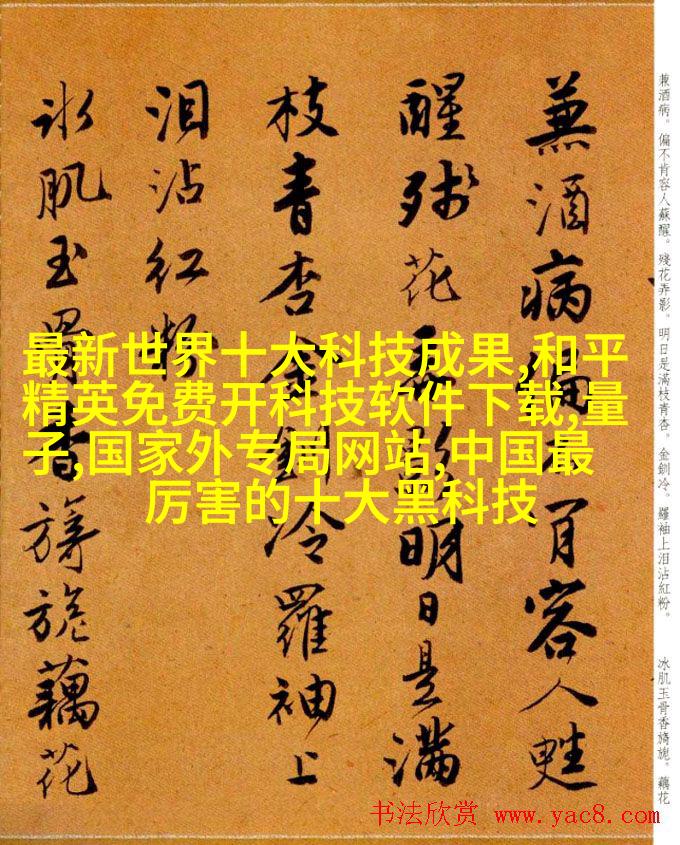 兼酒病。偏不肯容人蘇醒。殘花弄影。明日是滿枝青杏。金釧冷。羅袖上泪沾紅粉。 冰肌玉骨香旖旎。藕花
兼酒病偏不肯容人甦
醒殘花弄影明日是滿
枝青杏金釧冷羅袖上
泪沾红粉
冰肌玉骨香旖旎藕花
最新世界十大科技成果,和平
精英免费开科技软件下载,量
子,国家外专局网站,中国最
厉害的十大黑科技
书法欣赏 www.yac8.com